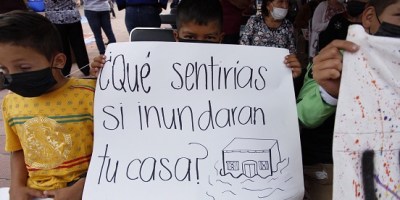 ¿Qué sentirias
si inundaran
tu casa?